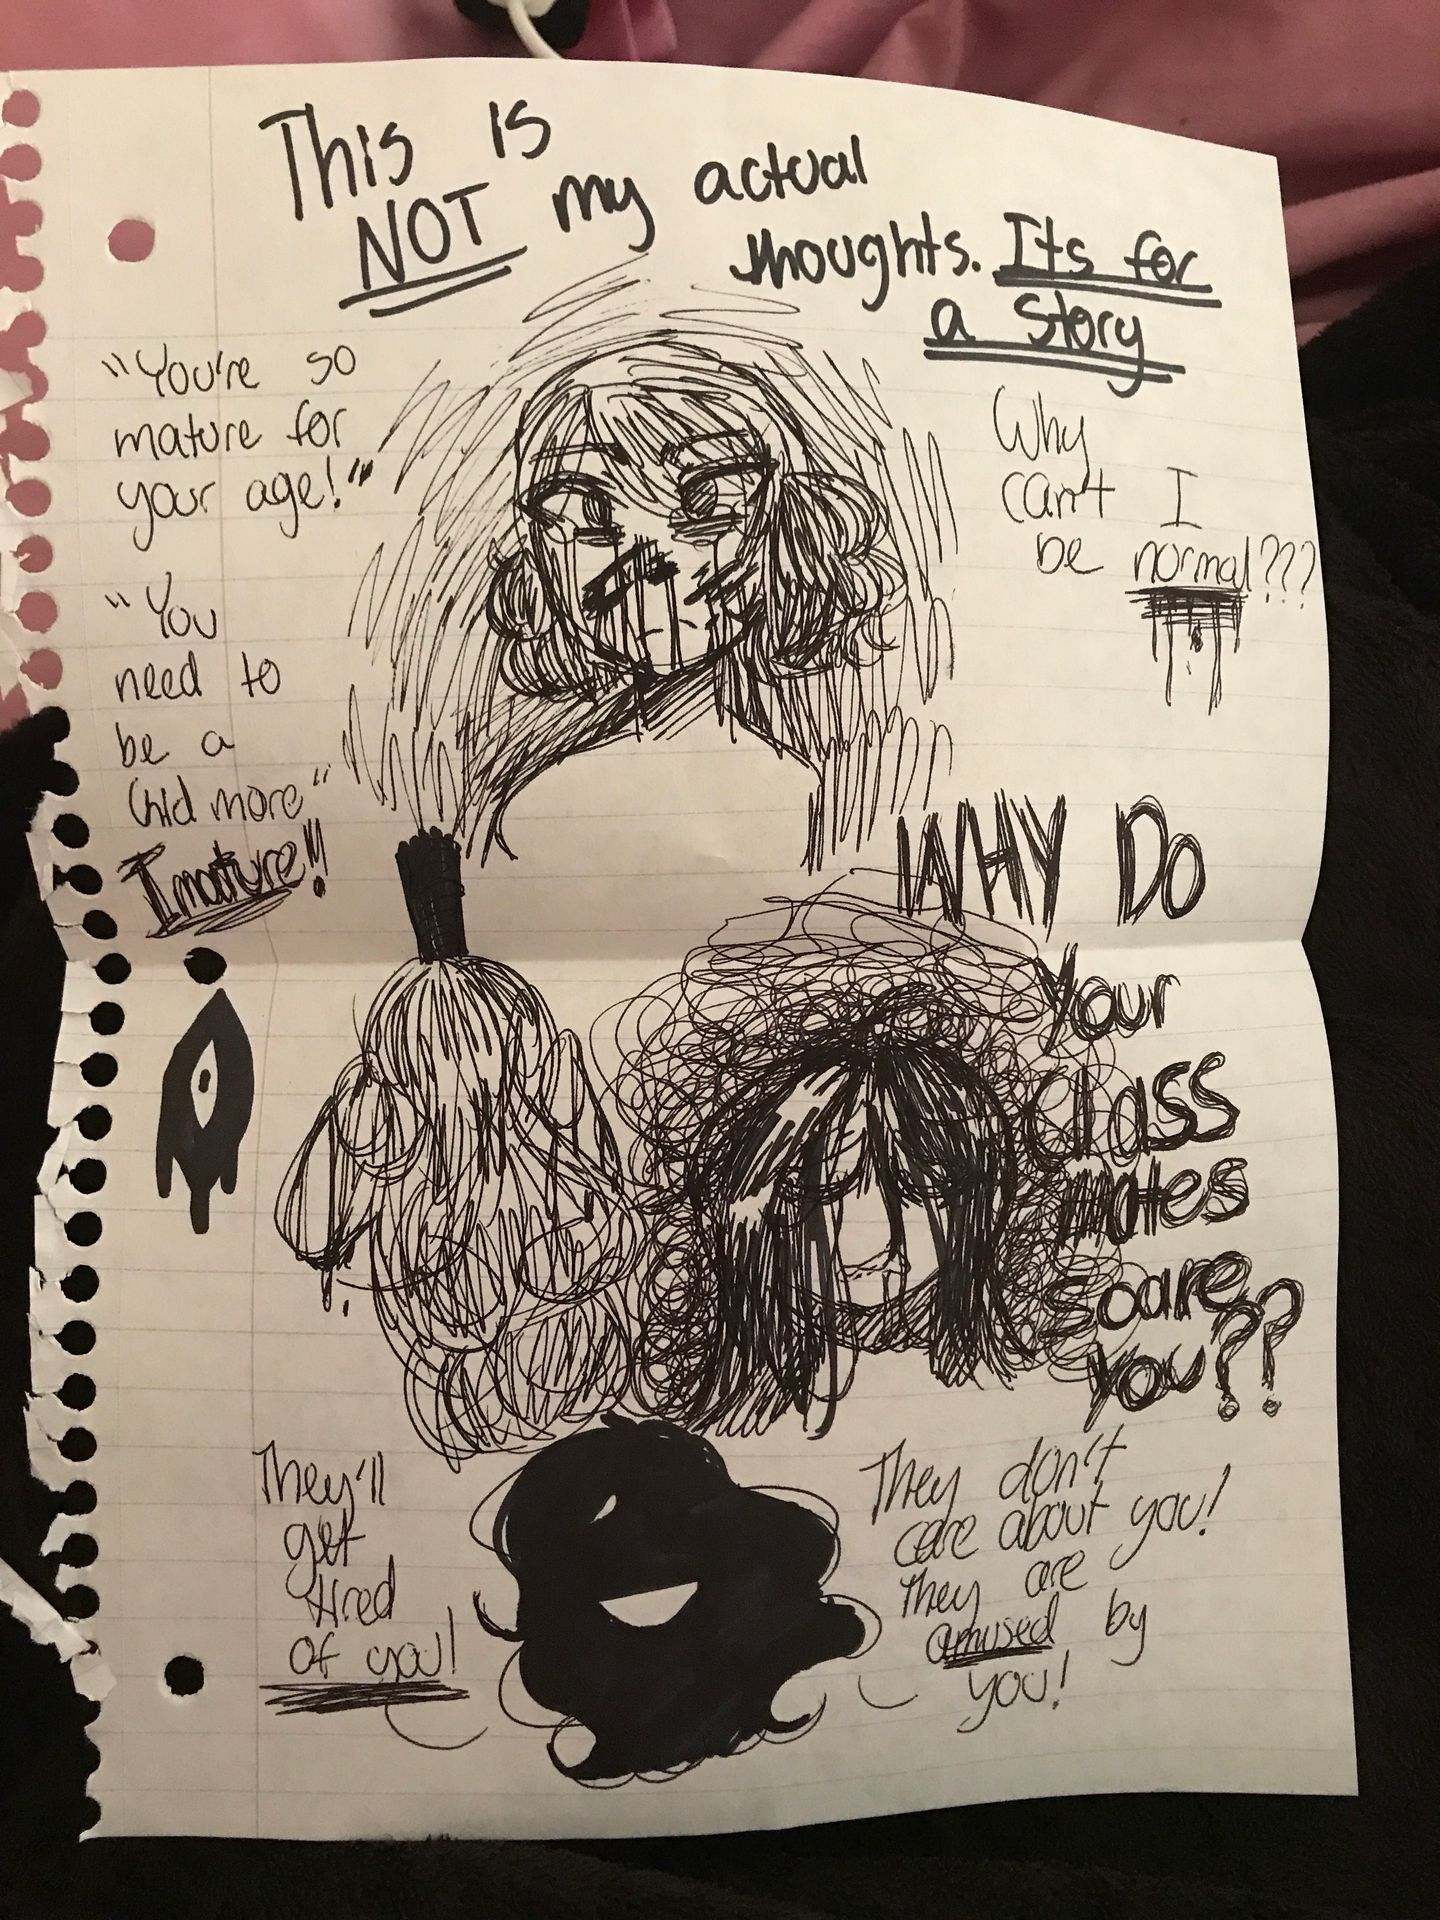 This is
NOT my actual
thoughts. Its for
a story
"You're so
mature for
your age!"
"You
need to
be a
Child more"
Imature!!
Why
can't I
be normal???
WHY DO
Your
class
mates
scare
you??
They'll
get
tired
of you!
They don't
care about you!
They are
amused by
you!